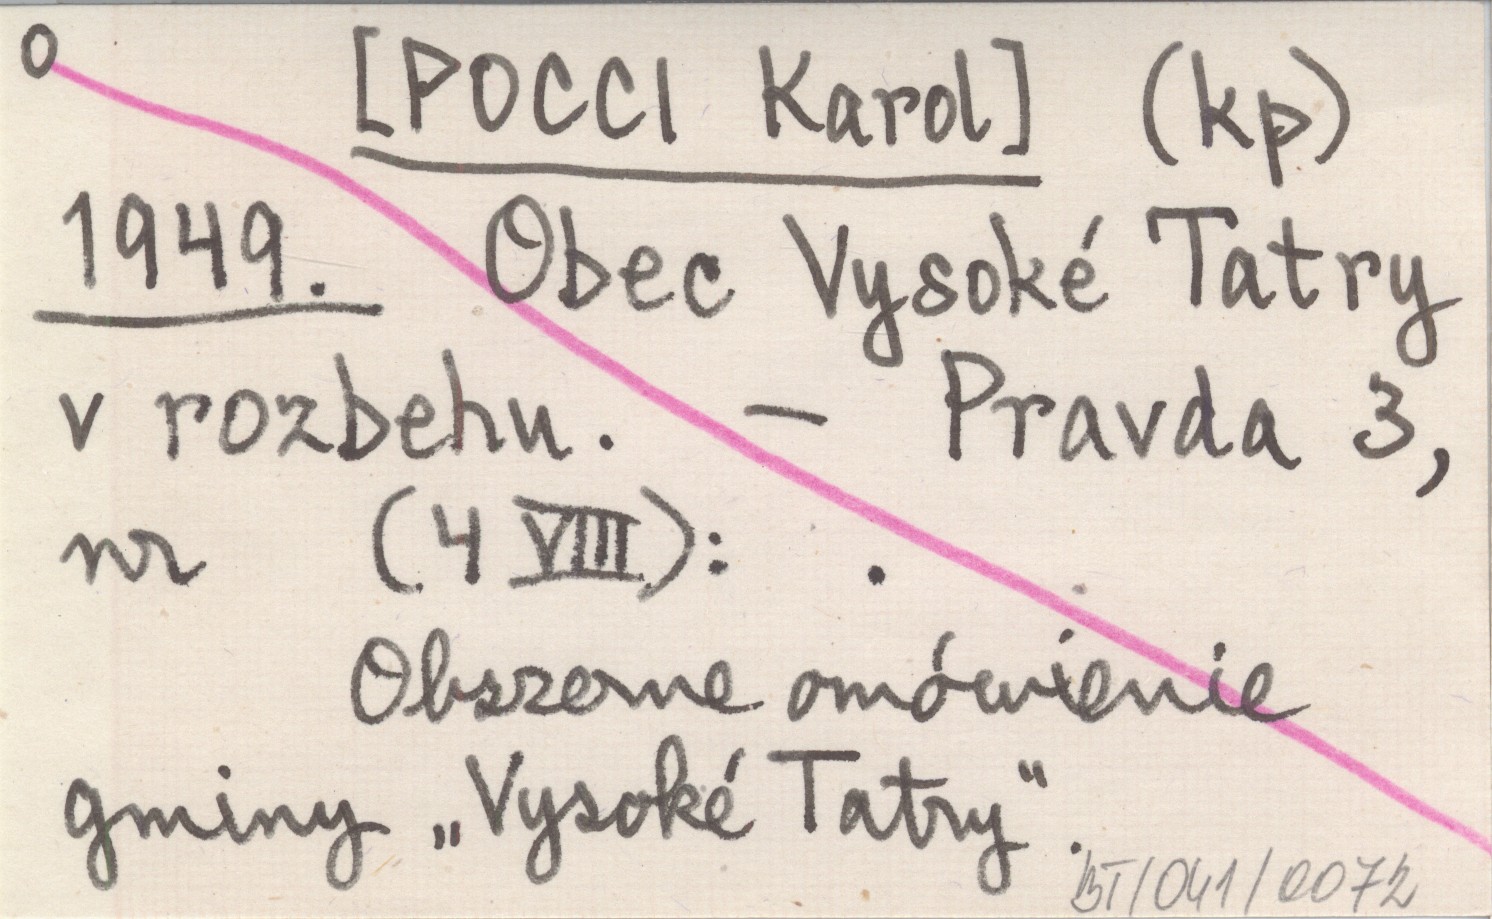 O [POCCI Karol] (kp)
1949. Obec Vysoké Tatry
v rozbehu. — Pravda 3,
nr (4 VIII): .
Obszerne omówienie
gminy „Vysoké Tatry".
BT/041/0072